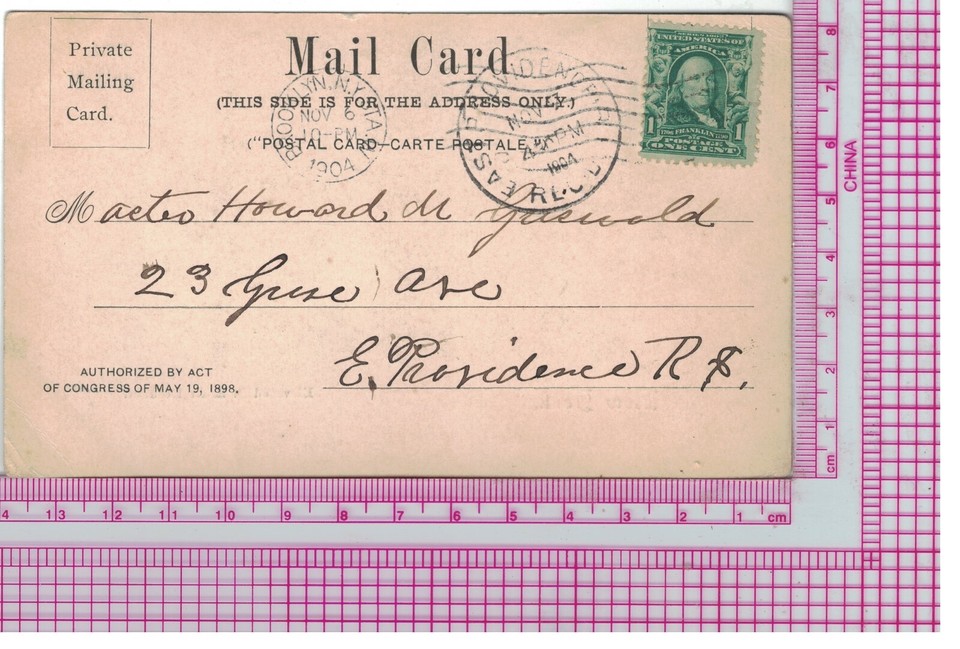 Private
Mailing
Card.
Mail Card
(THIS SIDE IS FOR THE ADDRESS ONLY.)
("POSTAL CARD–CARTE POSTALE
BROOKLYN, N.Y. STA.
NOV 6
10-PM
1904
EAST PROVIDENCE
NOV
1904
REC'D
SERIES 1902
UNITED STATES OF
AMERICA
1 1
FRANKLIN
POSTAGE
ONE CENT
Howard M Griswold
23 Ave
E. Providence R I.
AUTHORIZED BY ACT
OF CONGRESS OF MAY 19, 1898.
8
7
6
5
4
3
2
1
cm
CHINA
4 13 12 11 10 9 8 7 6 5 4 3 2 1 cm